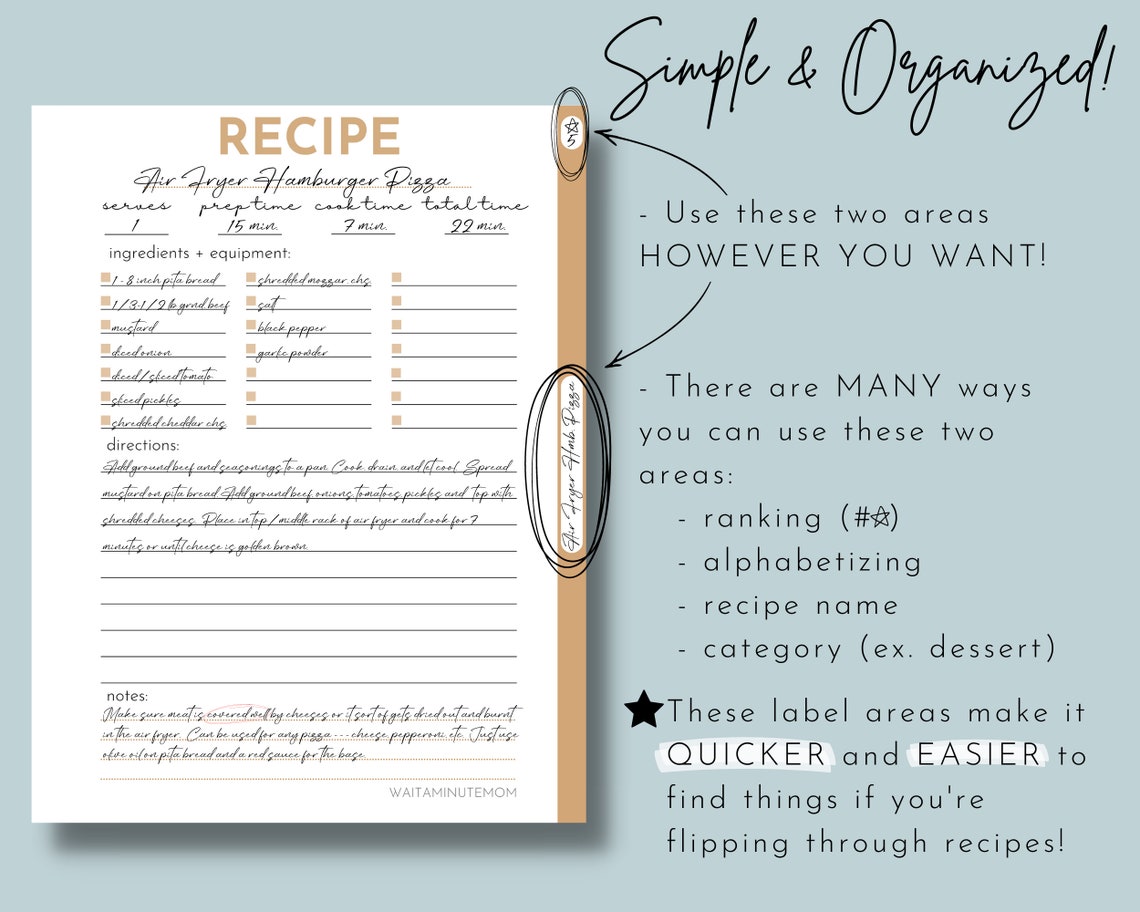 Simple & Organized!
RECIPE
☆
5
Air Fryer Hamburger Pizza
serves prep time cook time total time
1 15 min. 7 min. 22 min.
ingredients + equipment:
1 - 8 inch pita bread
1/3-1/2 lb grnd beef
mustard
diced onion
diced / sliced tomato
sliced pickles
shredded cheddar chs.
shredded mozzar. chs.
salt
black pepper
garlic powder
directions:
Add ground beef and seasonings to a pan. Cook, drain, and let cool. Spread
mustard on pita bread. Add ground beef, onions, tomatoes, pickles, and top with
shredded cheeses. Place in top / middle rack of air fryer and cook for 7
minutes or until cheese is golden brown.
notes:
Make sure meat is covered well by cheeses or it sort of gets dried out and burnt
in the air fryer. Can be used for any pizza --- cheese, pepperoni, etc. Just use
olive oil on pita bread and a red sauce for the base.
WAITAMINUTEMOM
Air Fryer Hmb. Pizza
- Use these two areas
HOWEVER YOU WANT!
- There are MANY ways
you can use these two
areas:
- ranking (#☆)
- alphabetizing
- recipe name
- category (ex. dessert)
★These label areas make it
QUICKER and EASIER to
find things if you're
flipping through recipes!